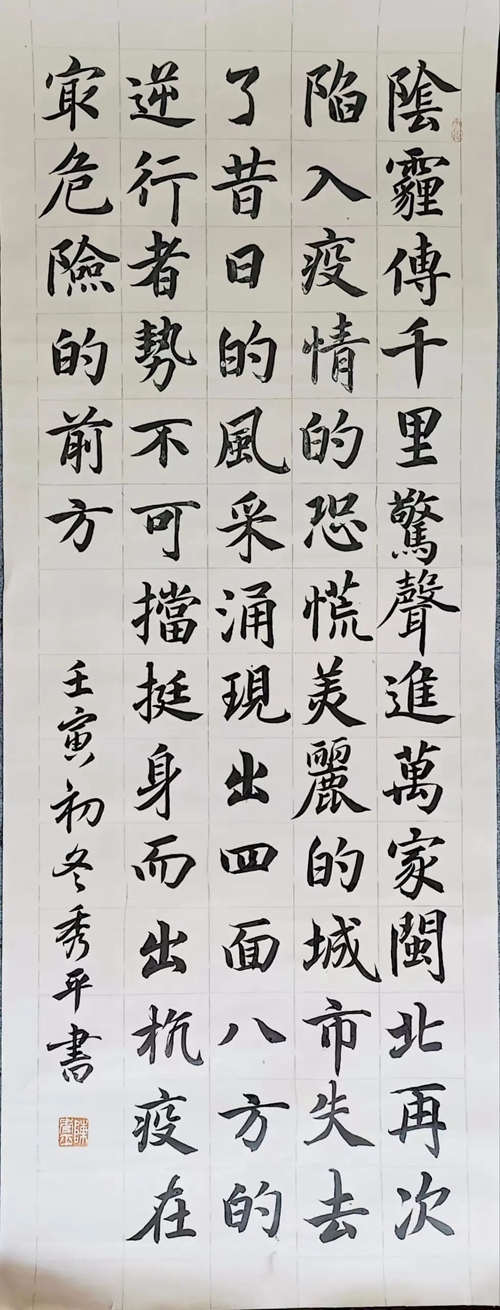 陰霾傳千里驚聲進萬家閩北再次
陷入疫情的恐慌美麗的城市失去
了昔日的風采涌現出四面八方的
逆行者勢不可擋挺身而出杭疫在
冣危險的前方
壬寅初冬秀平書